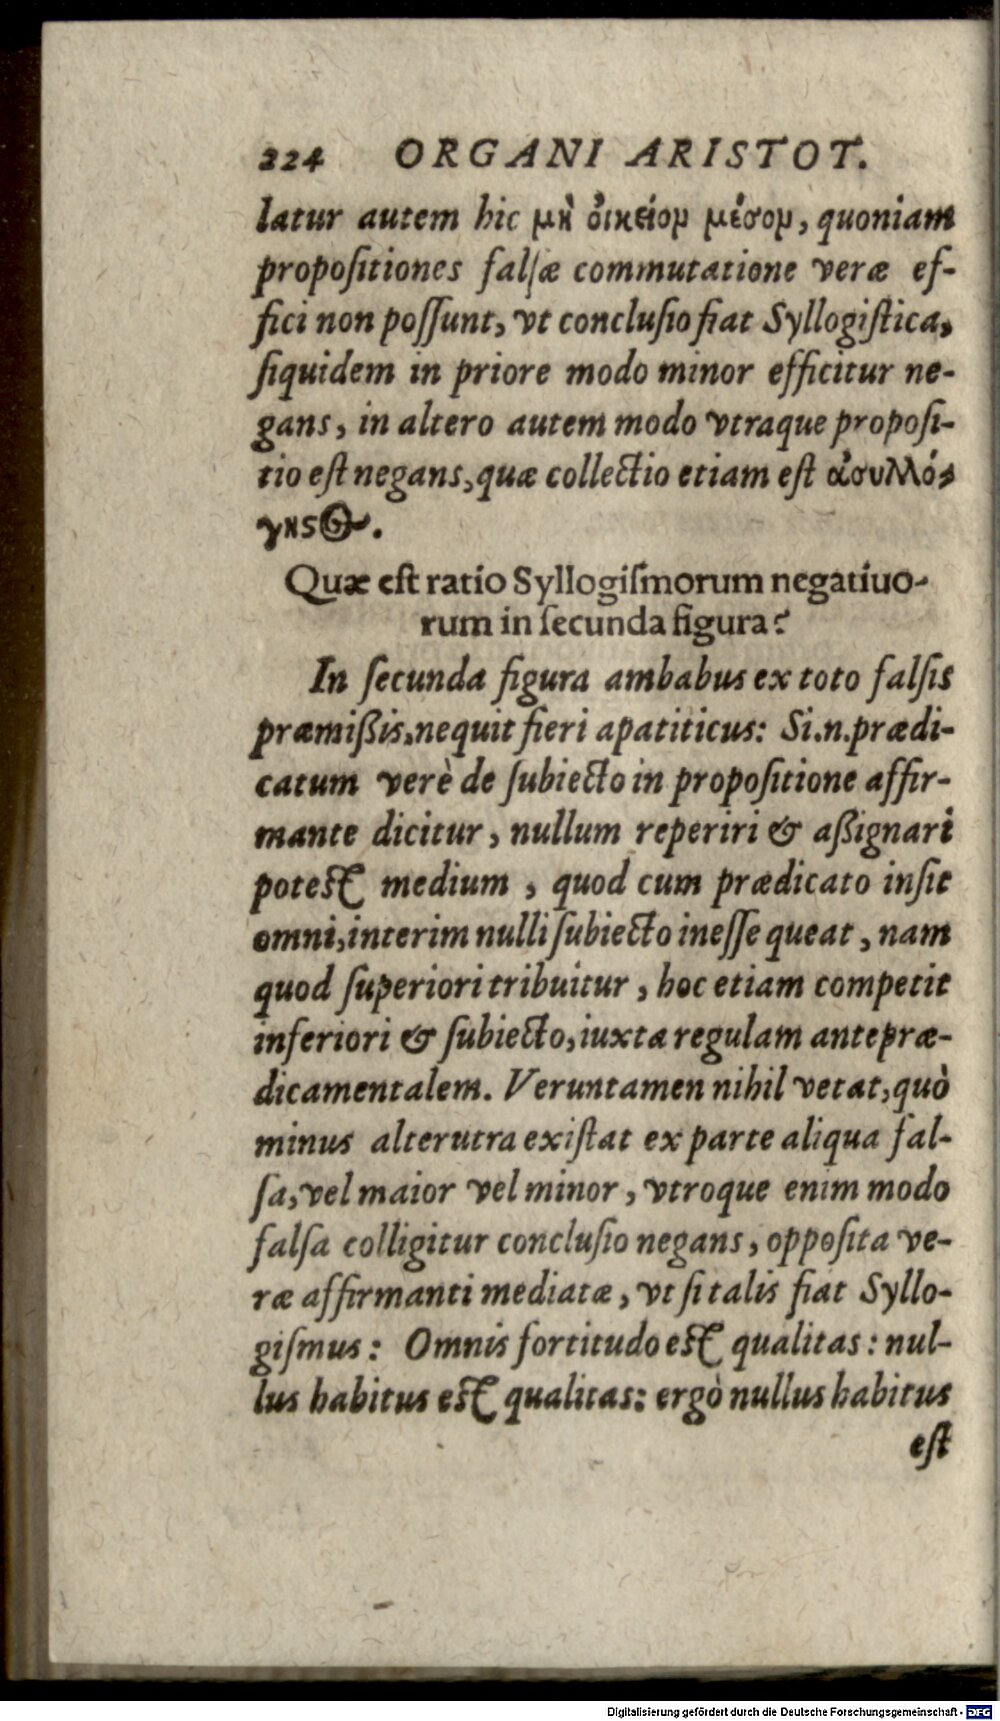 224 ORGANI ARISTOT.
latur autem hic μὴ ὀικεῖον μέσον, quoniam
propoſitiones falſæ commutatione veræ ef-
fici non poſſunt, vt concluſio fiat Syllogiſtica,
ſiquidem in priore modo minor efficitur ne-
gans, in altero autem modo vtraque propoſi-
tio eſt negans, quæ collectio etiam eſt ἀσυλλό-
γιϛος.
Quæ eſt ratio Syllogiſmorum negatiuo-
rum in ſecunda figura?
In ſecunda figura ambabus ex toto falſis
præmißis, nequit fieri apatiticus: Si.n.prædi-
catum verè de ſubiecto in propoſitione affir-
mante dicitur, nullum reperiri & aßignari
poteſt medium, quod cum prædicato inſit
omni, interim nulli ſubiecto ineſſe queat, nam
quod ſuperiori tribuitur, hoc etiam competit
inferiori & ſubiecto, iuxta regulam antepræ-
dicamentalem. Veruntamen nihil vetat, quò
minus alterutra exiſtat ex parte aliqua fal-
ſa, vel maior vel minor, vtroque enim modo
falſa colligitur concluſio negans, oppoſita ve-
ræ affirmanti mediatæ, vt ſi talis fiat Syllo-
giſmus: Omnis fortitudo eſt qualitas: nul-
lus habitus eſt qualitas: ergò nullus habitus
eſt
Digitalisierung gefördert durch die Deutsche Forschungsgemeinschaft - DFG